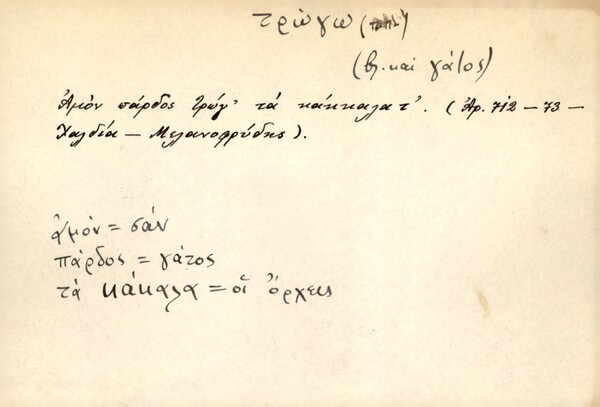 τρώγω
(βλ. και γάτος)
Ἀμὸν πάρδος τρώγ' τὰ κάκκαλατ'. (Ἀρ. 712 – 73 –
Χαλδία – Μελανοφρύδης).
ἀμὸν = σάν
πάρδος = γάτος
τὰ κάκαλα = οἱ ὄρχεις